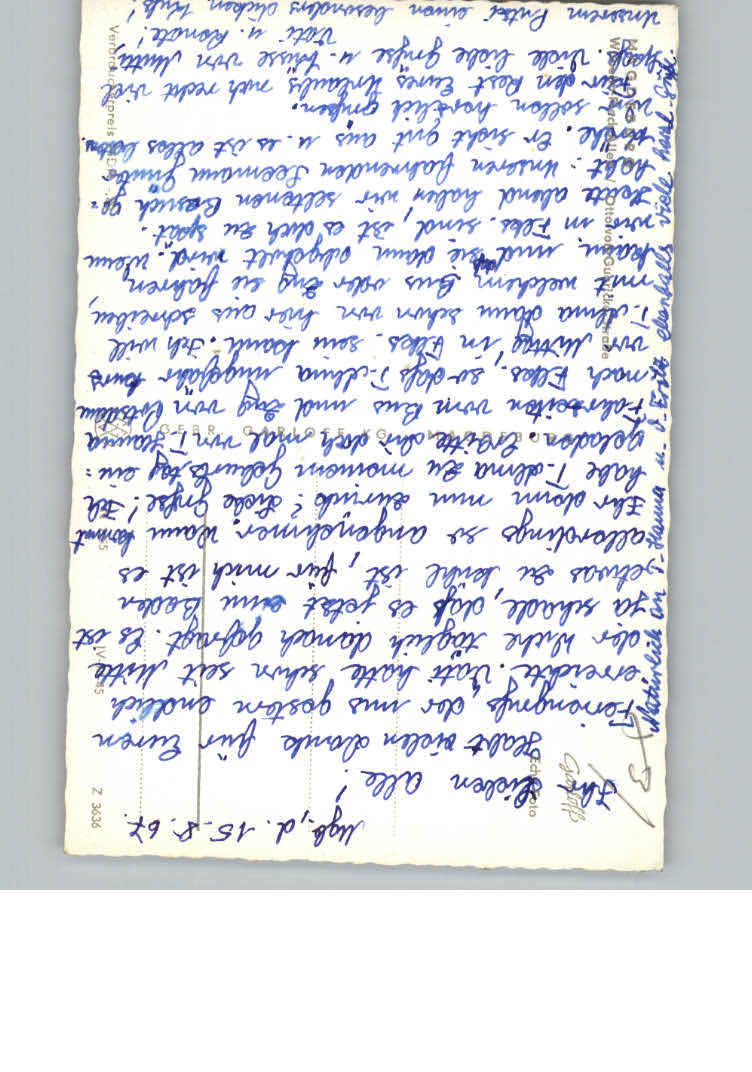 Mgb., d. 15. 8. 67.
Ihr Lieben alle!
Habt vielen Dank für Euren
Feriengruß, der uns gestern endlich
erreichte. Vati hatte schon seit Mitte
der Woche täglich danach gefragt. Es ist
ja schade, daß es jetzt zum Baden
etwas zu kühl ist, für mich ist es
allerdings so angenehmer. Wann kommt
Ihr dann nun zurück? Liebe Grüße! Ich
habe T. Alma zu meinem Geburtstag ein-
geladen. Erbitte dir doch mal von T. Hanna
Fahrzeiten vom Bus und Zug von Potsdam
nach Flks. so daß T. Alma ungefähr kurz
vor Mittag in Flks. sein kann. Ich will
T. Alma dann schon von hier aus schreiben,
mit welchem Bus oder Zug sie fahren
kann, und sie dann abgeholt wird. Wenn
wir in Flks. sind, ist es doch zu spät.
Heute abend haben wir seltenen Besuch ge-
habt: unseren fahrenden Seemann
Er sieht gut aus u. es ist alles
Wir sollen herzlich grüßen.
Für den Rest Eures Urlaubs noch recht viel
Spaß. Viele liebe Grüße u. Küsse von Mutti,
Vati u. Renate!
Unserem Putzi einen besonders dicken Kuß!
Natürlich an T. Hanna u. O. Fritz ebenfalls viele herzl. Grüße.
Echt Foto
Garloff
GEBR. GARLOFF KG, MAGDEBURG
Magdeburg
Otto-von-Guericke-Straße
Z 3636